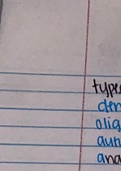 type
den
olig
aut
ana